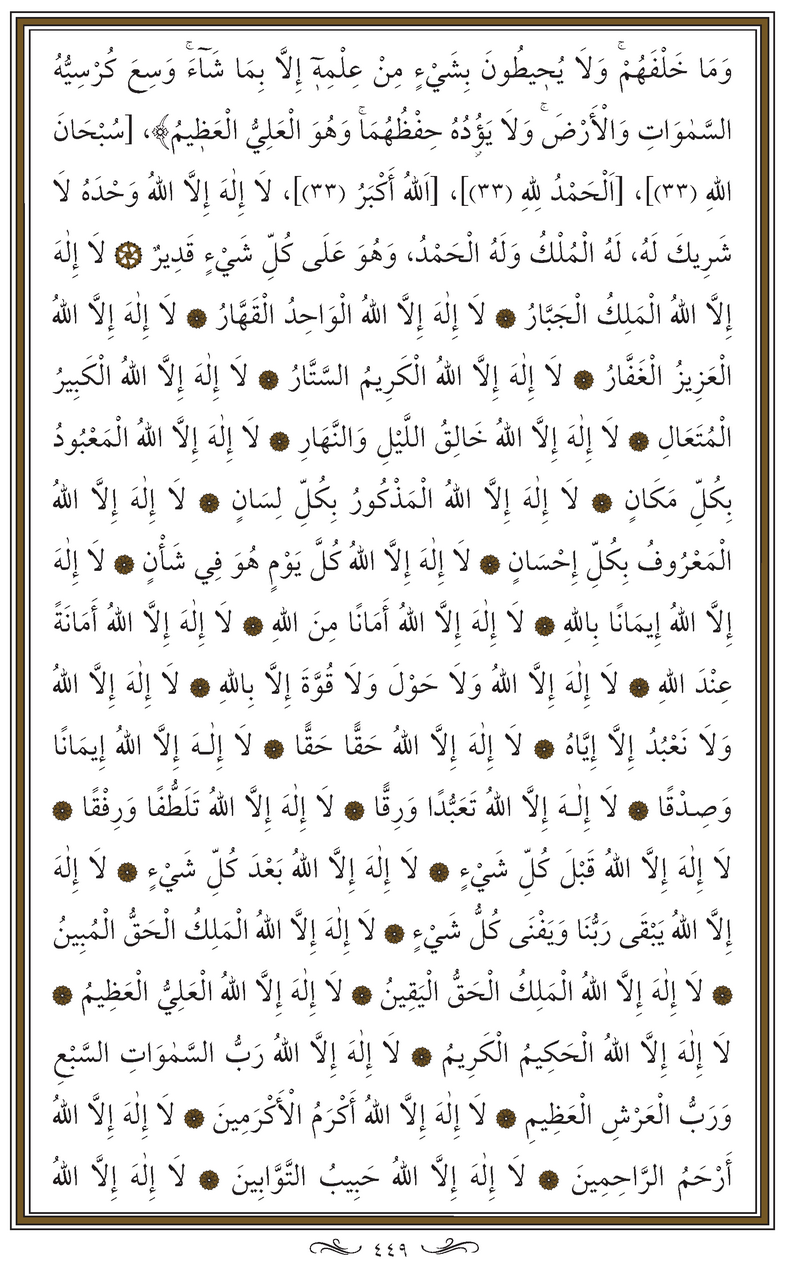 وَمَا خَلْفَهُمْۚ وَلَا يُحِيطُونَ بِشَيْءٍ مِنْ عِلْمِهِٓ إِلَّا بِمَا شَٓاءَۚ وَسِعَ كُرْسِيُّهُ
السَّمٰوَاتِ وَالْأَرْضَۚ وَلَا يَؤُدُهُ حِفْظُهُمَاۚ وَهُوَ الْعَلِيُّ الْعَظِيمُ﴾، [سُبْحَانَ
اللهِ (٣٣)]، [اَلْحَمْدُ لِلهِ (٣٣)]، [اَللهُ أَكْبَرُ (٣٣)]، لَا إِلٰهَ إِلَّا اللهُ وَحْدَهُ لَا
شَرِيكَ لَهُ، لَهُ الْمُلْكُ وَلَهُ الْحَمْدُ، وَهُوَ عَلَى كُلِّ شَيْءٍ قَدِيرٌ ۞ لَا إِلٰهَ
إِلَّا اللهُ الْمَلِكُ الْجَبَّارُ ۞ لَا إِلٰهَ إِلَّا اللهُ الْوَاحِدُ الْقَهَّارُ ۞ لَا إِلٰهَ إِلَّا اللهُ
الْعَزِيزُ الْغَفَّارُ ۞ لَا إِلٰهَ إِلَّا اللهُ الْكَرِيمُ السَّتَّارُ ۞ لَا إِلٰهَ إِلَّا اللهُ الْكَبِيرُ
الْمُتَعَالِ ۞ لَا إِلٰهَ إِلَّا اللهُ خَالِقُ اللَّيْلِ وَالنَّهَارِ ۞ لَا إِلٰهَ إِلَّا اللهُ الْمَعْبُودُ
بِكُلِّ مَكَانٍ ۞ لَا إِلٰهَ إِلَّا اللهُ الْمَذْكُورُ بِكُلِّ لِسَانٍ ۞ لَا إِلٰهَ إِلَّا اللهُ
الْمَعْرُوفُ بِكُلِّ إِحْسَانٍ ۞ لَا إِلٰهَ إِلَّا اللهُ كُلَّ يَوْمٍ هُوَ فِي شَأْنٍ ۞ لَا إِلٰهَ
إِلَّا اللهُ إِيمَانًا بِاللهِ ۞ لَا إِلٰهَ إِلَّا اللهُ أَمَانًا مِنَ اللهِ ۞ لَا إِلٰهَ إِلَّا اللهُ أَمَانَةً
عِنْدَ اللهِ ۞ لَا إِلٰهَ إِلَّا اللهُ وَلَا حَوْلَ وَلَا قُوَّةَ إِلَّا بِاللهِ ۞ لَا إِلٰهَ إِلَّا اللهُ
وَلَا نَعْبُدُ إِلَّا إِيَّاهُ ۞ لَا إِلٰهَ إِلَّا اللهُ حَقًّا حَقًّا ۞ لَا إِلٰهَ إِلَّا اللهُ إِيمَانًا
وَصِدْقًا ۞ لَا إِلٰهَ إِلَّا اللهُ تَعَبُّدًا وَرِقًّا ۞ لَا إِلٰهَ إِلَّا اللهُ تَلَطُّفًا وَرِفْقًا ۞
لَا إِلٰهَ إِلَّا اللهُ قَبْلَ كُلِّ شَيْءٍ ۞ لَا إِلٰهَ إِلَّا اللهُ بَعْدَ كُلِّ شَيْءٍ ۞ لَا إِلٰهَ
إِلَّا اللهُ يَبْقَى رَبُّنَا وَيَفْنَى كُلُّ شَيْءٍ ۞ لَا إِلٰهَ إِلَّا اللهُ الْمَلِكُ الْحَقُّ الْمُبِينُ
۞ لَا إِلٰهَ إِلَّا اللهُ الْمَلِكُ الْحَقُّ الْيَقِينُ ۞ لَا إِلٰهَ إِلَّا اللهُ الْعَلِيُّ الْعَظِيمُ ۞
لَا إِلٰهَ إِلَّا اللهُ الْحَكِيمُ الْكَرِيمُ ۞ لَا إِلٰهَ إِلَّا اللهُ رَبُّ السَّمٰوَاتِ السَّبْعِ
وَرَبُّ الْعَرْشِ الْعَظِيمِ ۞ لَا إِلٰهَ إِلَّا اللهُ أَكْرَمُ الْأَكْرَمِينَ ۞ لَا إِلٰهَ إِلَّا اللهُ
أَرْحَمُ الرَّاحِمِينَ ۞ لَا إِلٰهَ إِلَّا اللهُ حَبِيبُ التَّوَّابِينَ ۞ لَا إِلٰهَ إِلَّا اللهُ
٤٤٩